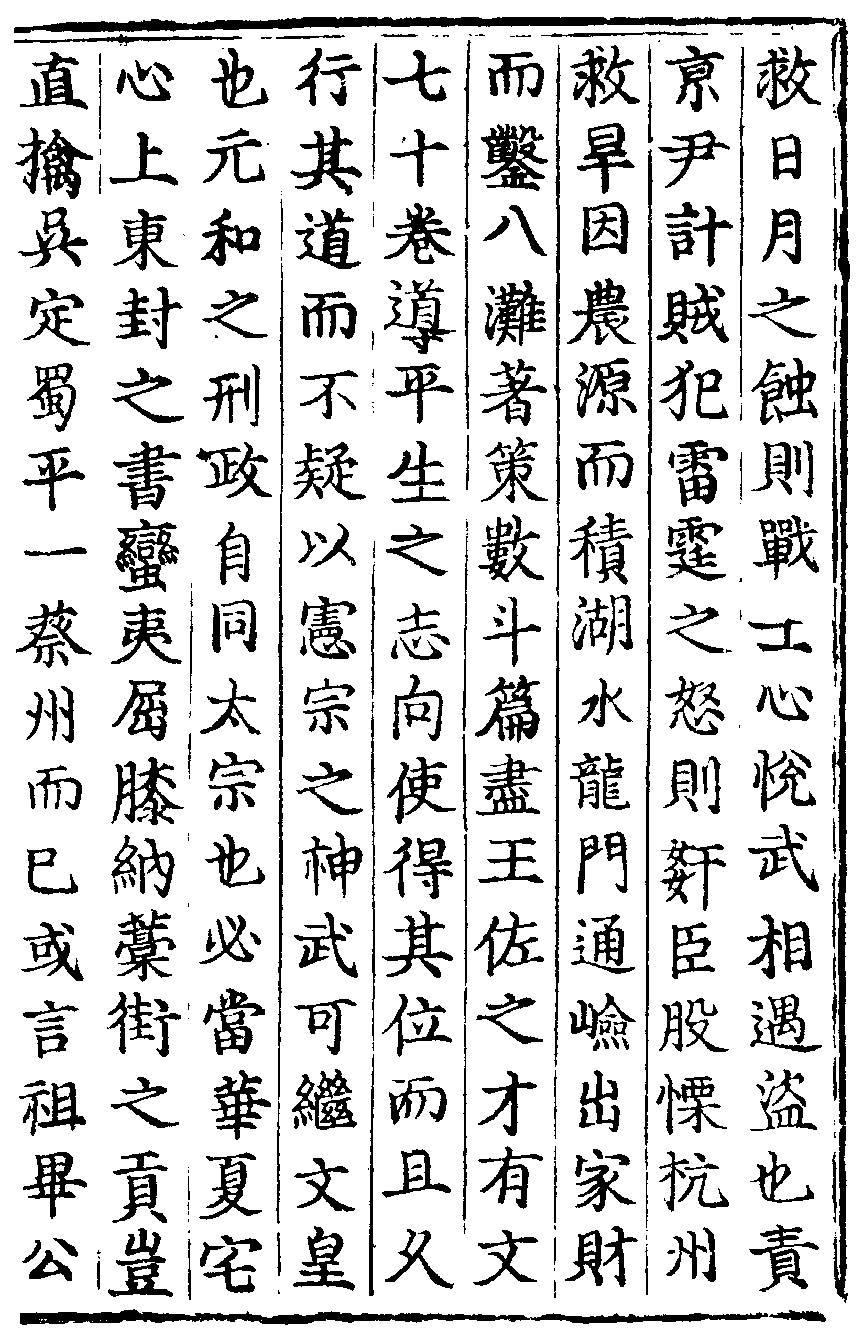 救日月之蝕則戰士心悅武相遇盜也責
京尹計賊犯雷霆之怒則姧臣股慄杭州
救旱因農源而積湖水龍門通嶮出家財
而鑿八灘著策數斗篇盡王佐之才有文
七十卷導平生之志向使得其位而且久
行其道而不疑以憲宗之神武可繼文皇
也元和之刑政自同太宗也必當華夏宅
心上東封之書蠻夷屈膝納藁街之貢豈
直擒吳定蜀平一蔡州而已或言祖畢公